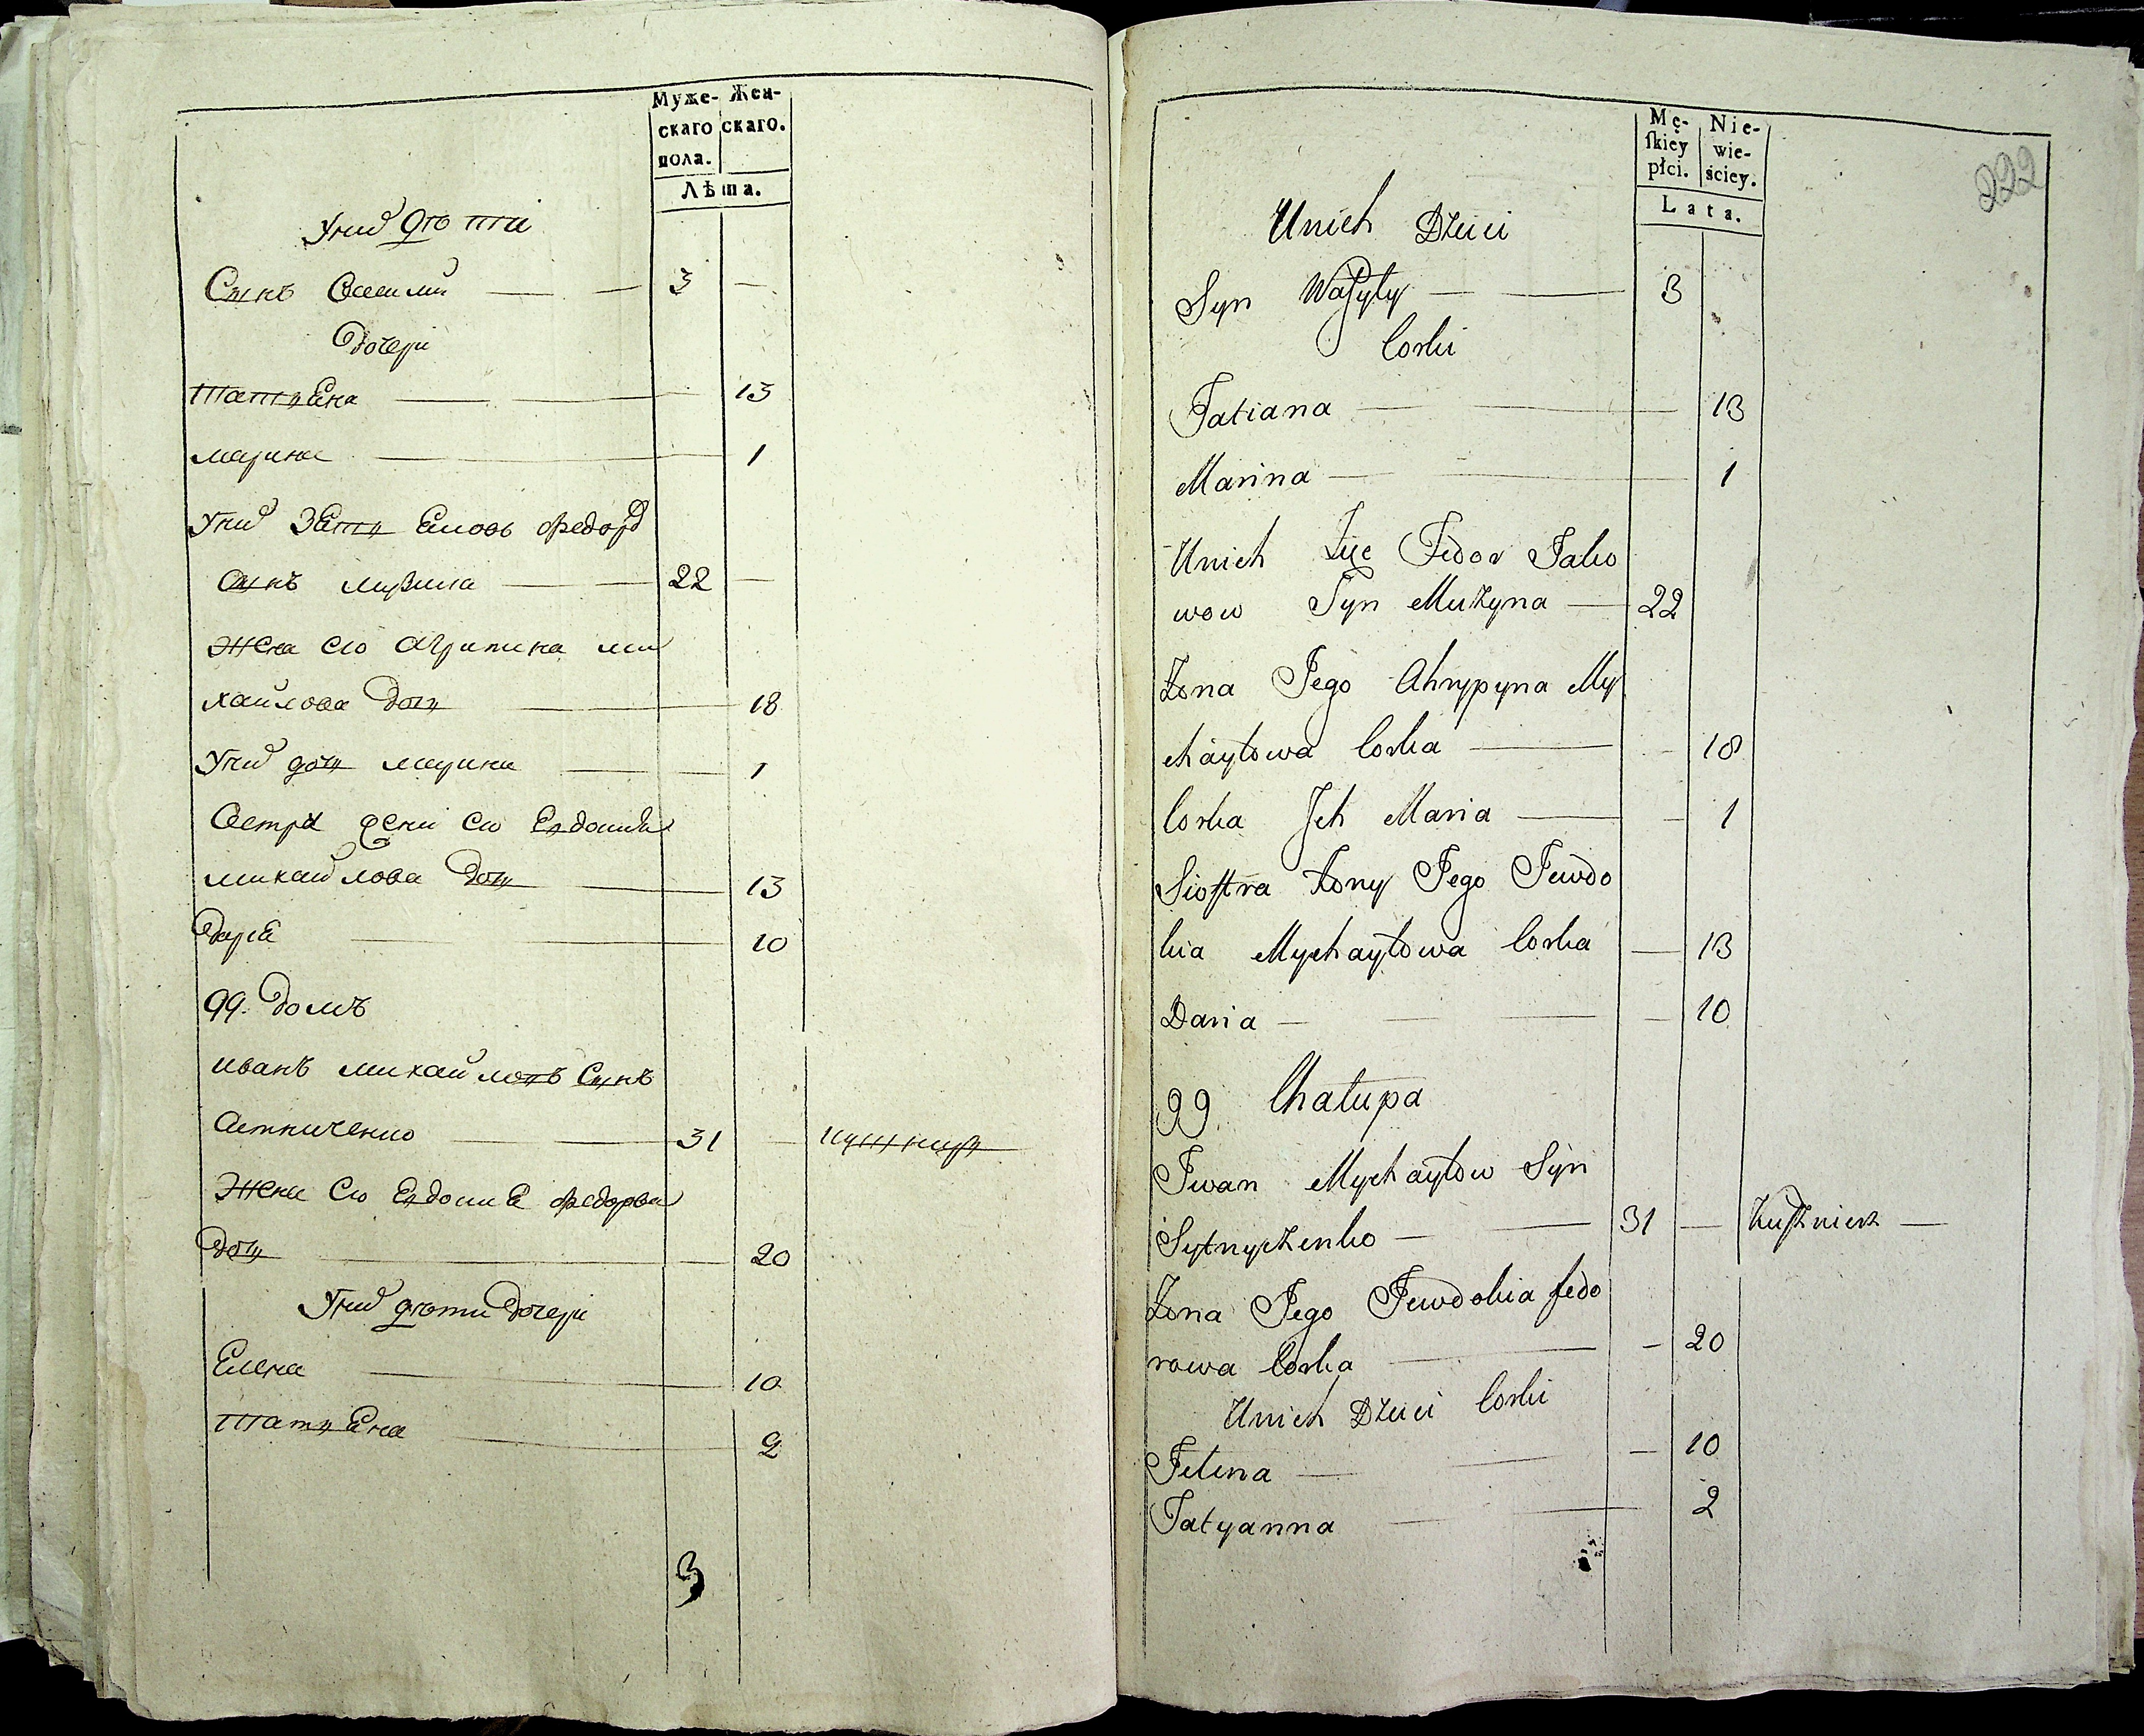 Муже- Жен-
скаго скаго.
пола.
Лѣта.
У них дѣти
Сынъ Василий 3 —
Дочери
Татьяна 13
Марина 1
У них зять Яковъ Федоръ
Сынъ 22 —
Жена его Агрипина Ми
хайлова дочь 18
У них дочь Марина 1
Сестра жены его Евдокия
Михайлова дочь 13
Дарья 10
99. Домъ
Иванъ Михайловъ Сынъ
Ситниченко 31 — кушниръ
Жена его Евдокия Федорова
дочь 20
У них дѣти дочери
Елена 10
Татьяна 2
3
222
Mę- Nie-
ſkiey wie-
płci. ściey.
Lata.
Unich Dzieci
Syn Wasyly — — 3
Corki
Tatiana — — 13
Marina — — 1
Unich Zięc Fedor Jako
wow Syn Muzyna — 22
Zona Jego Ahrypyna My
chayłowa Corka — 18
Corka Jch Maria — 1
Sioſtra Zony Jego Jewdo
kia Mychayłowa Corka — 13
Daria — — — 10
99 Chałupa
Jwan Mychayłow Syn
Sytnyczenko — — 31 — Kuſznierz —
Zona Jego Jewdokia fedo
rowa Corka — 20
Unich Dzieci Corki
Jelena — — 10
Tatyanna — — 2